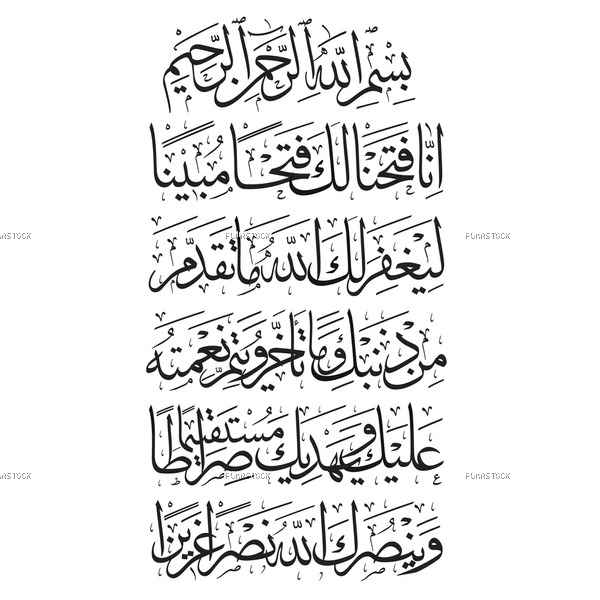 بسم الله الرحمن الرحيم
انا فتحنا لك فتحا مبينا
ليغفر لك الله ما تقدم
FUMASTOCK FUMASTOCK FUMASTOCK
من ذنبك وما تأخر ويتم نعمته
عليك ويهديك صراطا مستقيما
FUMASTOCK FUMASTOCK FUMASTOCK
وينصرك الله نصرا عزيزا